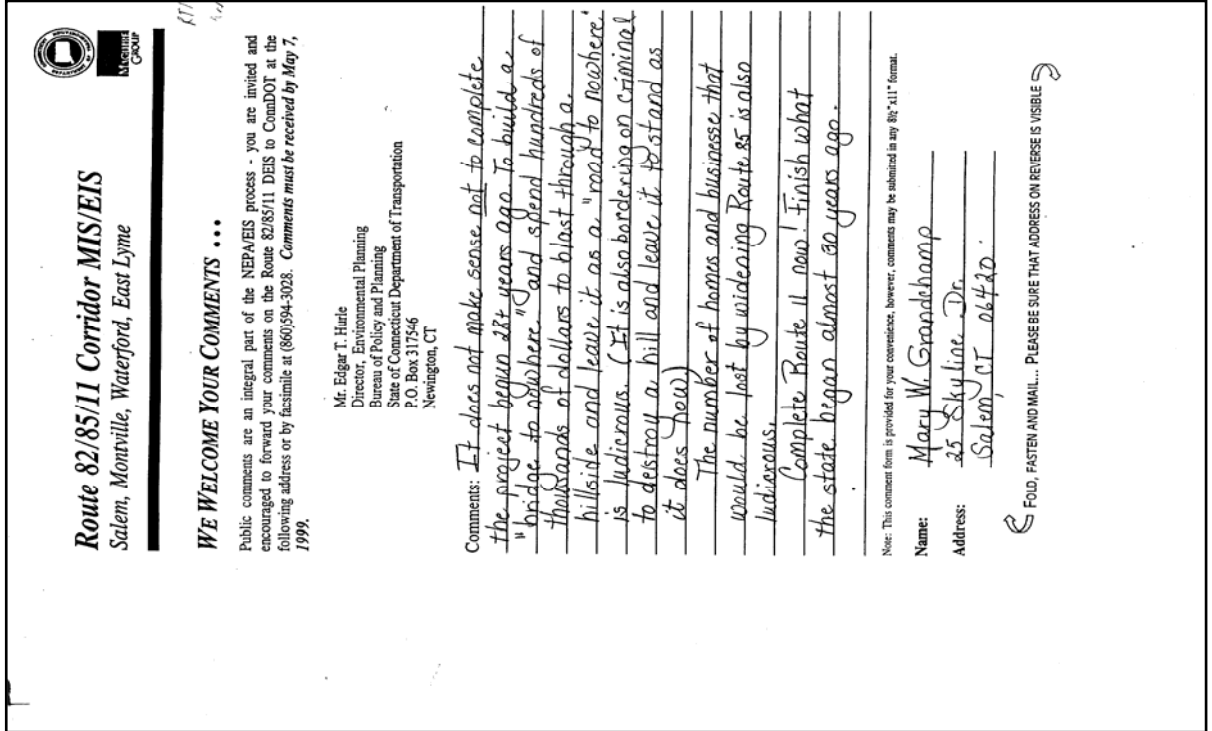 MAGUIRE
GROUP
Route 82/85/11 Corridor MIS/EIS
Salem, Montville, Waterford, East Lyme
WE WELCOME YOUR COMMENTS ...
Public comments are an integral part of the NEPA/EIS process - you are invited and
encouraged to forward your comments on the Route 82/85/11 DEIS to ConnDOT at the
following address or by facsimile at (860)594-3028. Comments must be received by May 7,
1999.
Mr. Edgar T. Hurle
Director, Environmental Planning
Bureau of Policy and Planning
State of Connecticut Department of Transportation
P.O. Box 317546
Newington, CT
Comments: It does not make sense not to complete
the project begun 28+ years ago. To build a
"bridge to nowhere" and spend hundreds of
thousands of dollars to blast through a
hillside and leave it as a "road to nowhere"
is ludicrous. (It is also bordering on criminal
to destroy a hill and leave it to stand as
it does now)
The number of homes and businesse that
would be lost by widening Route 85 is also
ludicrous.
Complete Route 11 now! Finish what
the state began almost 30 years ago.
Note: This comment form is provided for your convenience, however, comments may be submitted in any 8½"x11" format.
Name: Mary W. Grandchamp
Address: 25 Skyline Dr.
Salem, CT 06420
FOLD, FASTEN AND MAIL... PLEASE BE SURE THAT ADDRESS ON REVERSE IS VISIBLE